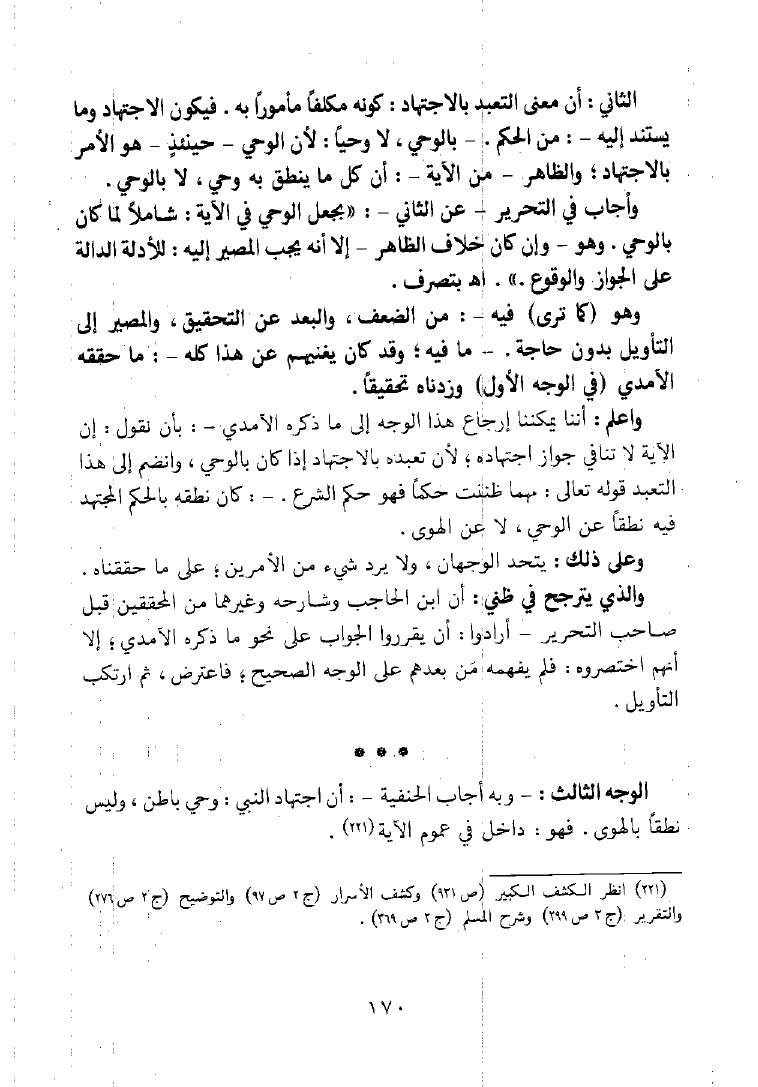 الثاني : أن معنى التعبد بالاجتهاد : كونه مكلفاً مأموراً به . فيكون الاجتهاد وما
يستند إليه – : من الحكم . – بالوحي ، لا وحياً : لأن الوحي – حينئذٍ – هو الأمر
بالاجتهاد ؛ والظاهر – من الآية – : أن كل ما ينطق به وحي ، لا بالوحي .
وأجاب في التحرير – عن الثاني – : « بجعل الوحي في الآية : شاملاً لما كان
بالوحي . وهو – وإن كان خلاف الظاهر – إلا أنه يجب المصير إليه : للأدلة الدالة
على الجواز والوقوع . » . اهـ بتصرف .
وهو (كما ترى) فيه – : من الضعف ، والبعد عن التحقيق ، والمصير إلى
التأويل بدون حاجة . – ما فيه ؛ وقد كان يغنيهم عن هذا كله – : ما حققه
الآمدي (في الوجه الأول) وزدناه تحقيقاً .
واعلم : أننا يمكننا إرجاع هذا الوجه إلى ما ذكره الآمدي – : بأن نقول : إن
الآية لا تنافي جواز اجتهاده ؛ لأن تعبده بالاجتهاد إذا كان بالوحي ، وانضم إلى هذا
التعبد قوله تعالى : مهما ظننت حكماً فهو حكم الشرع . – : كان نطقه بالحكم المجتهد
فيه نطقاً عن الوحي ، لا عن الهوى .
وعلى ذلك : يتحد الوجهان ، ولا يرد شيء من الأمرين ؛ على ما حققناه .
والذي يترجح في ظني : أن ابن الحاجب وشارحه وغيرهما من المحققين قبل
صاحب التحرير – أرادوا : أن يقرروا الجواب على نحو ما ذكره الآمدي ؛ إلا
أنهم اختصروه : فلم يفهمه مَن بعدهم على الوجه الصحيح ؛ فاعترض ، ثم ارتكب
التأويل .
* * *
الوجه الثالث : – وبه أجاب الحنفية – : أن اجتهاد النبي : وحي باطن ، وليس
نطقاً بالهوى . فهو : داخل في عموم الآية (٢٢١) .
(٢٢١) انظر الكشف الكبير (ص ٩٣١) وكشف الأسرار (ج ٢ ص ٩٧) والتوضيح (ج ٢ ص ٢٧٦)
والتقرير (ج ٣ ص ٢٩٩) وشرح المسلم (ج ٢ ص ٣٦٩) .
١٧٠